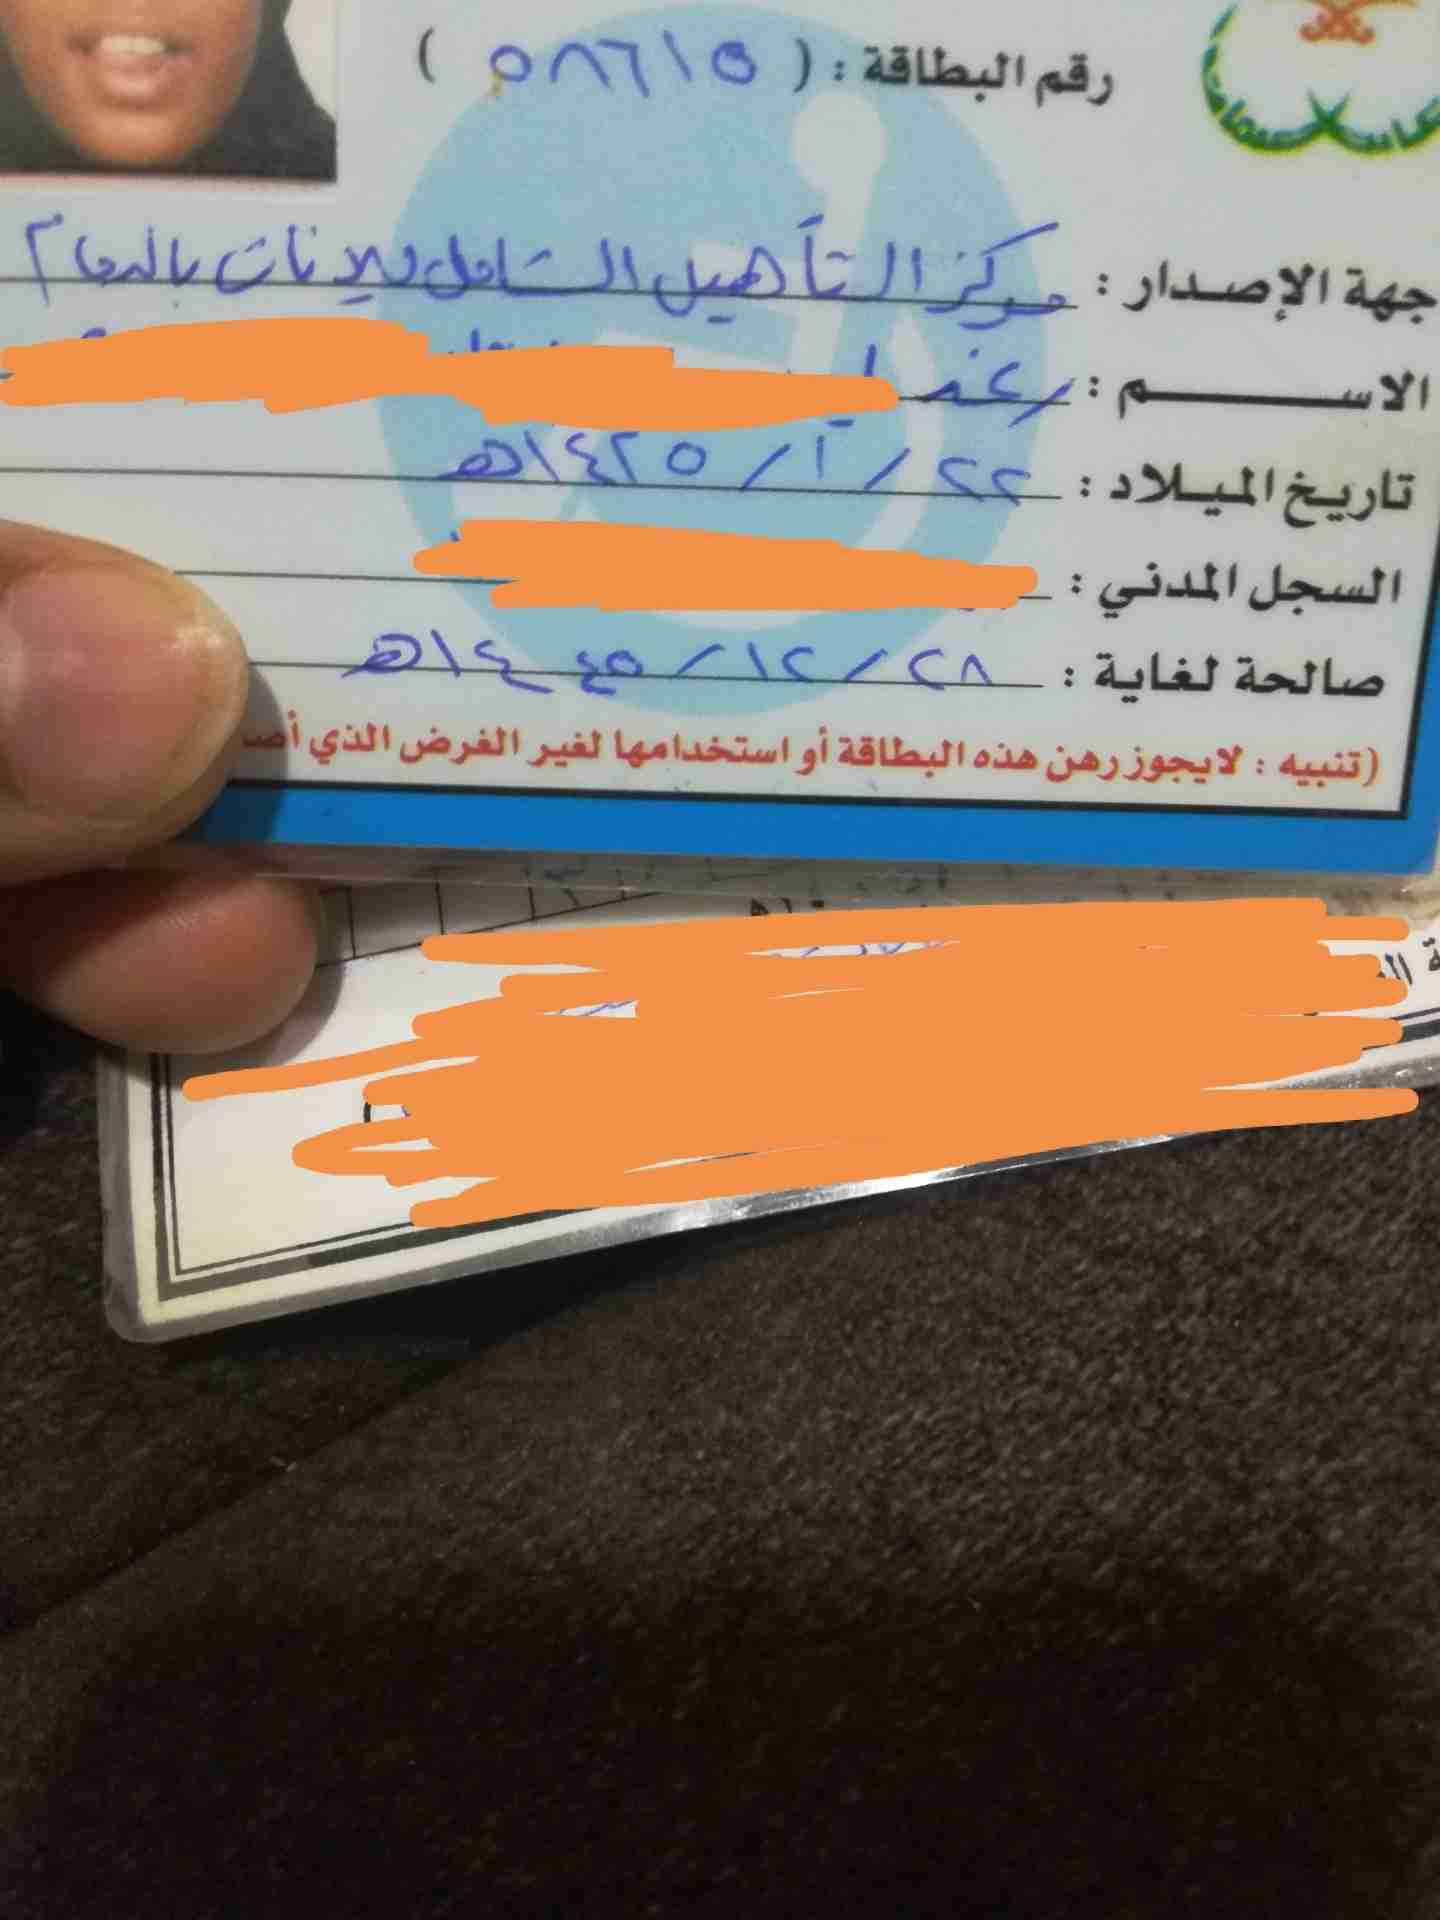 رقم البطاقة : ( ٥٨٦١٥ )
جهة الإصدار : مركز التأهيل الشامل للإناث بالدمام
الاســـــــم : رغد
تاريخ الميلاد : ٢٢ / ٦ / ١٤٢٥هـ
السجل المدني :
صالحة لغاية : ٢٨ / ١٢ / ١٤٤٥هـ
(تنبيه : لايجوز رهن هذه البطاقة أو استخدامها لغير الغرض الذي